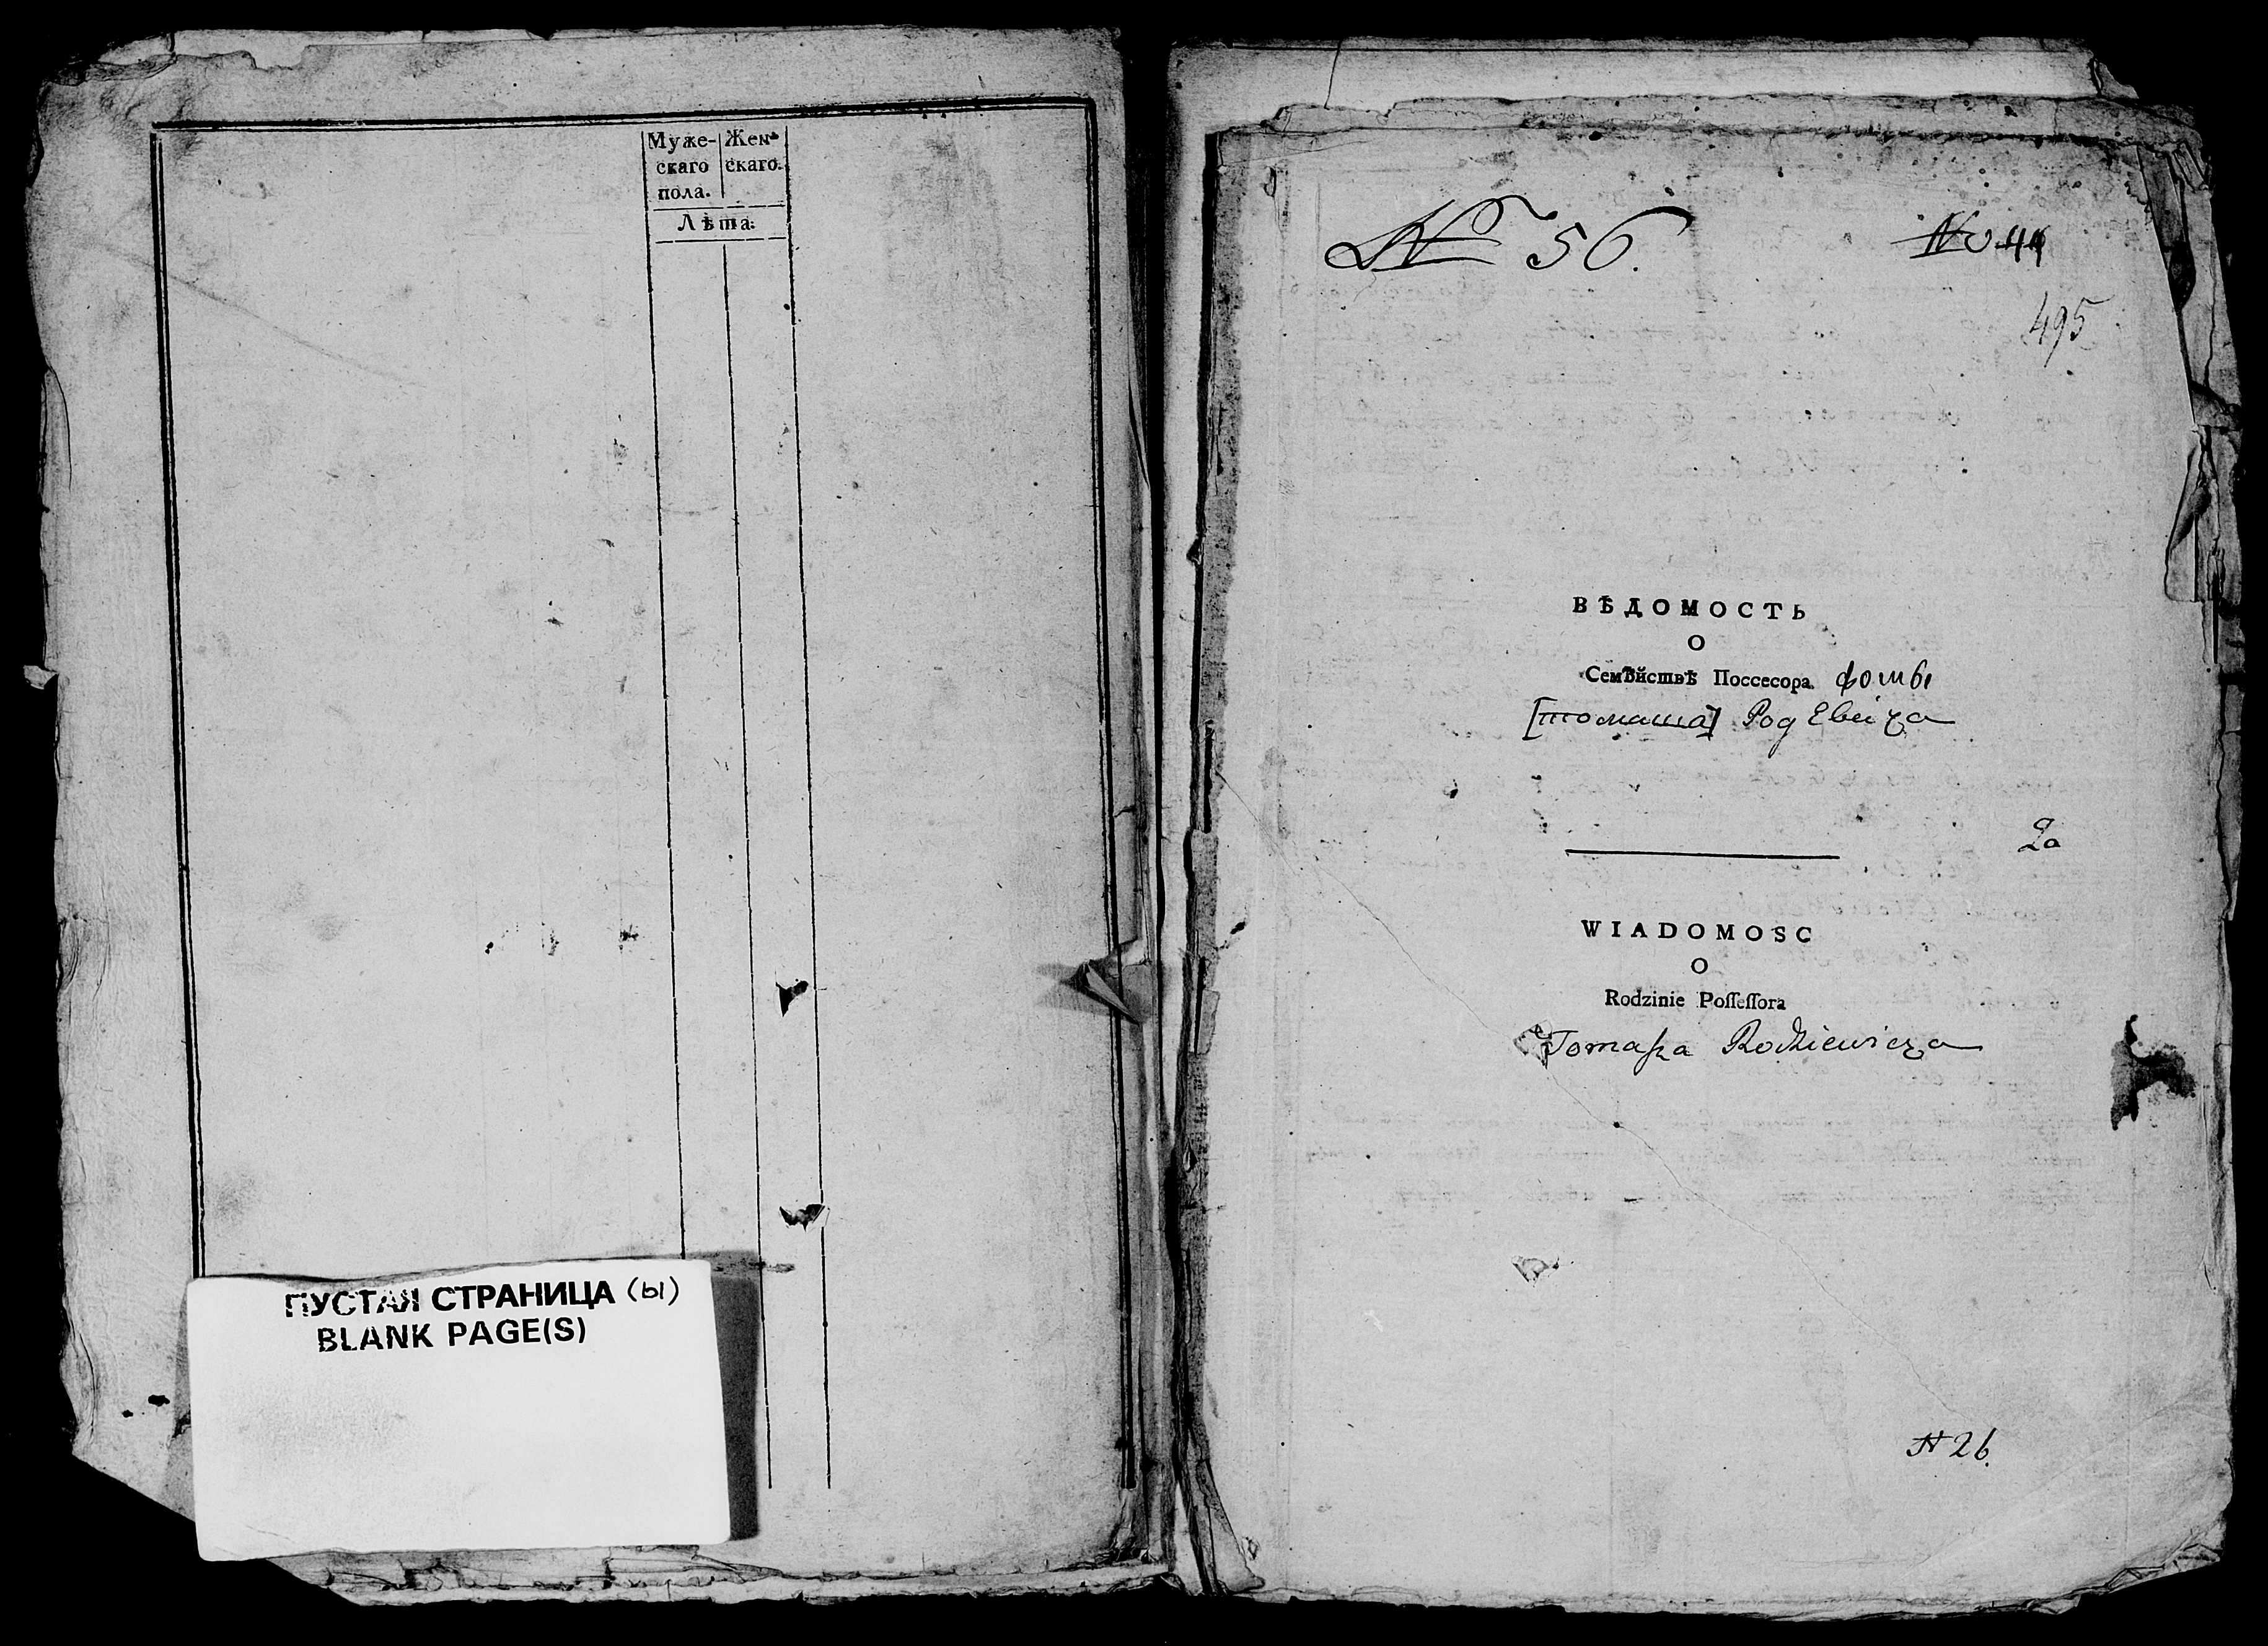 Муже- Жен-
скаго скаго.
пола.
Лѣта:
ПУСТАЯ СТРАНИЦА (ы)
BLANK PAGE(S)
№ 56.
No 44
495
ВѢДОМОСТЬ
О
Семѣйствѣ Поссесора Фомы
[томаша] РодЕвича
2a
WIADOMOSC
O
Rodzinie Poſſeſſora
Tomaſza Rodkiewicza
N 26.